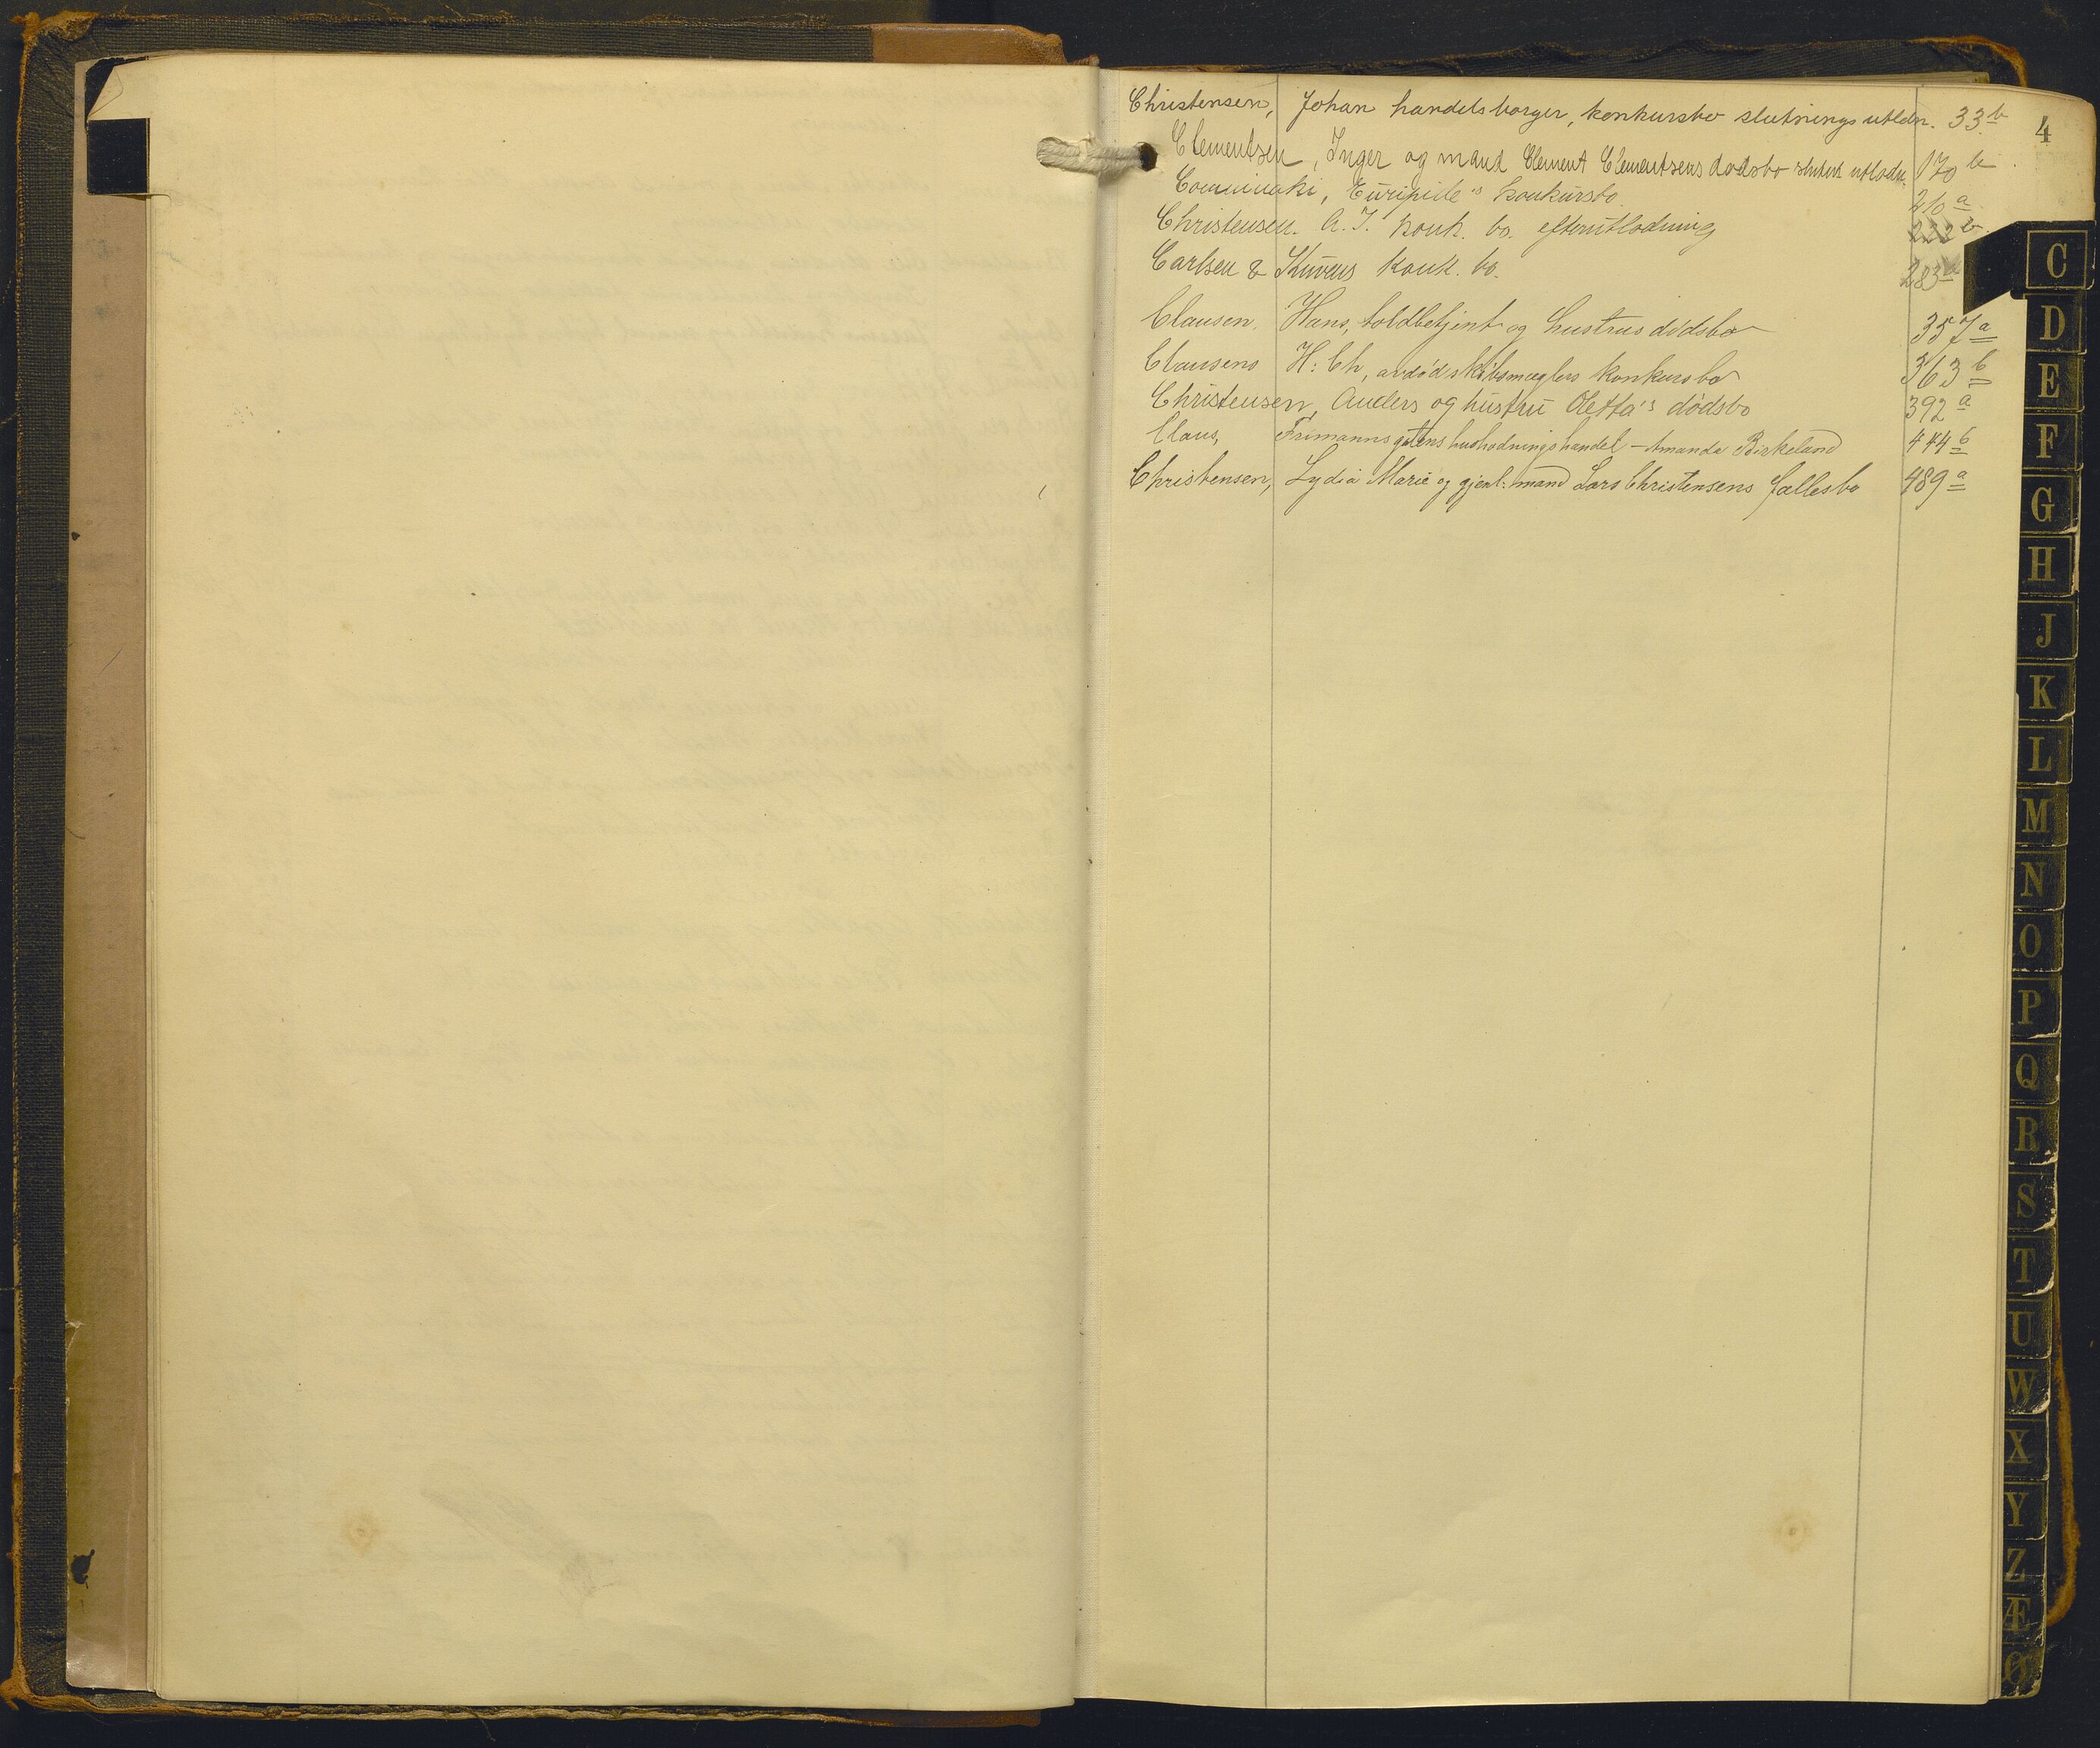 4
Christensen, Johan handelsborger, konkursbo slutningsutlodn. 33 b
Clementsen, Inger og mand Clement Clementsens dødsbo sluttet utlodn. 170 b
Comninaki, Euripide's konkursbo 210 a
Christensen. A. J. konk. bo. efterutlodning 222 b
Carlsen & konk. bo. 283 a
Clausen. Hans, toldbetjent og hustrus dødsbo 357 a
Clausens H: Ch, avdød skibsmæglers konkursbo 363 b
Christensen, Anders og hustru Oletta's dødsbo 392 a
Claus, Frimanns gatens husholdningshandel - Amanda Birkeland 444 b
Christensen, Lydia Marie og gjenl: mand Lars Christensens fællesbo 489 a
C
D
E
F
G
H
J
K
L
M
N
O
P
Q
R
S
T
U
W
X
Y
Z
Æ
Ø